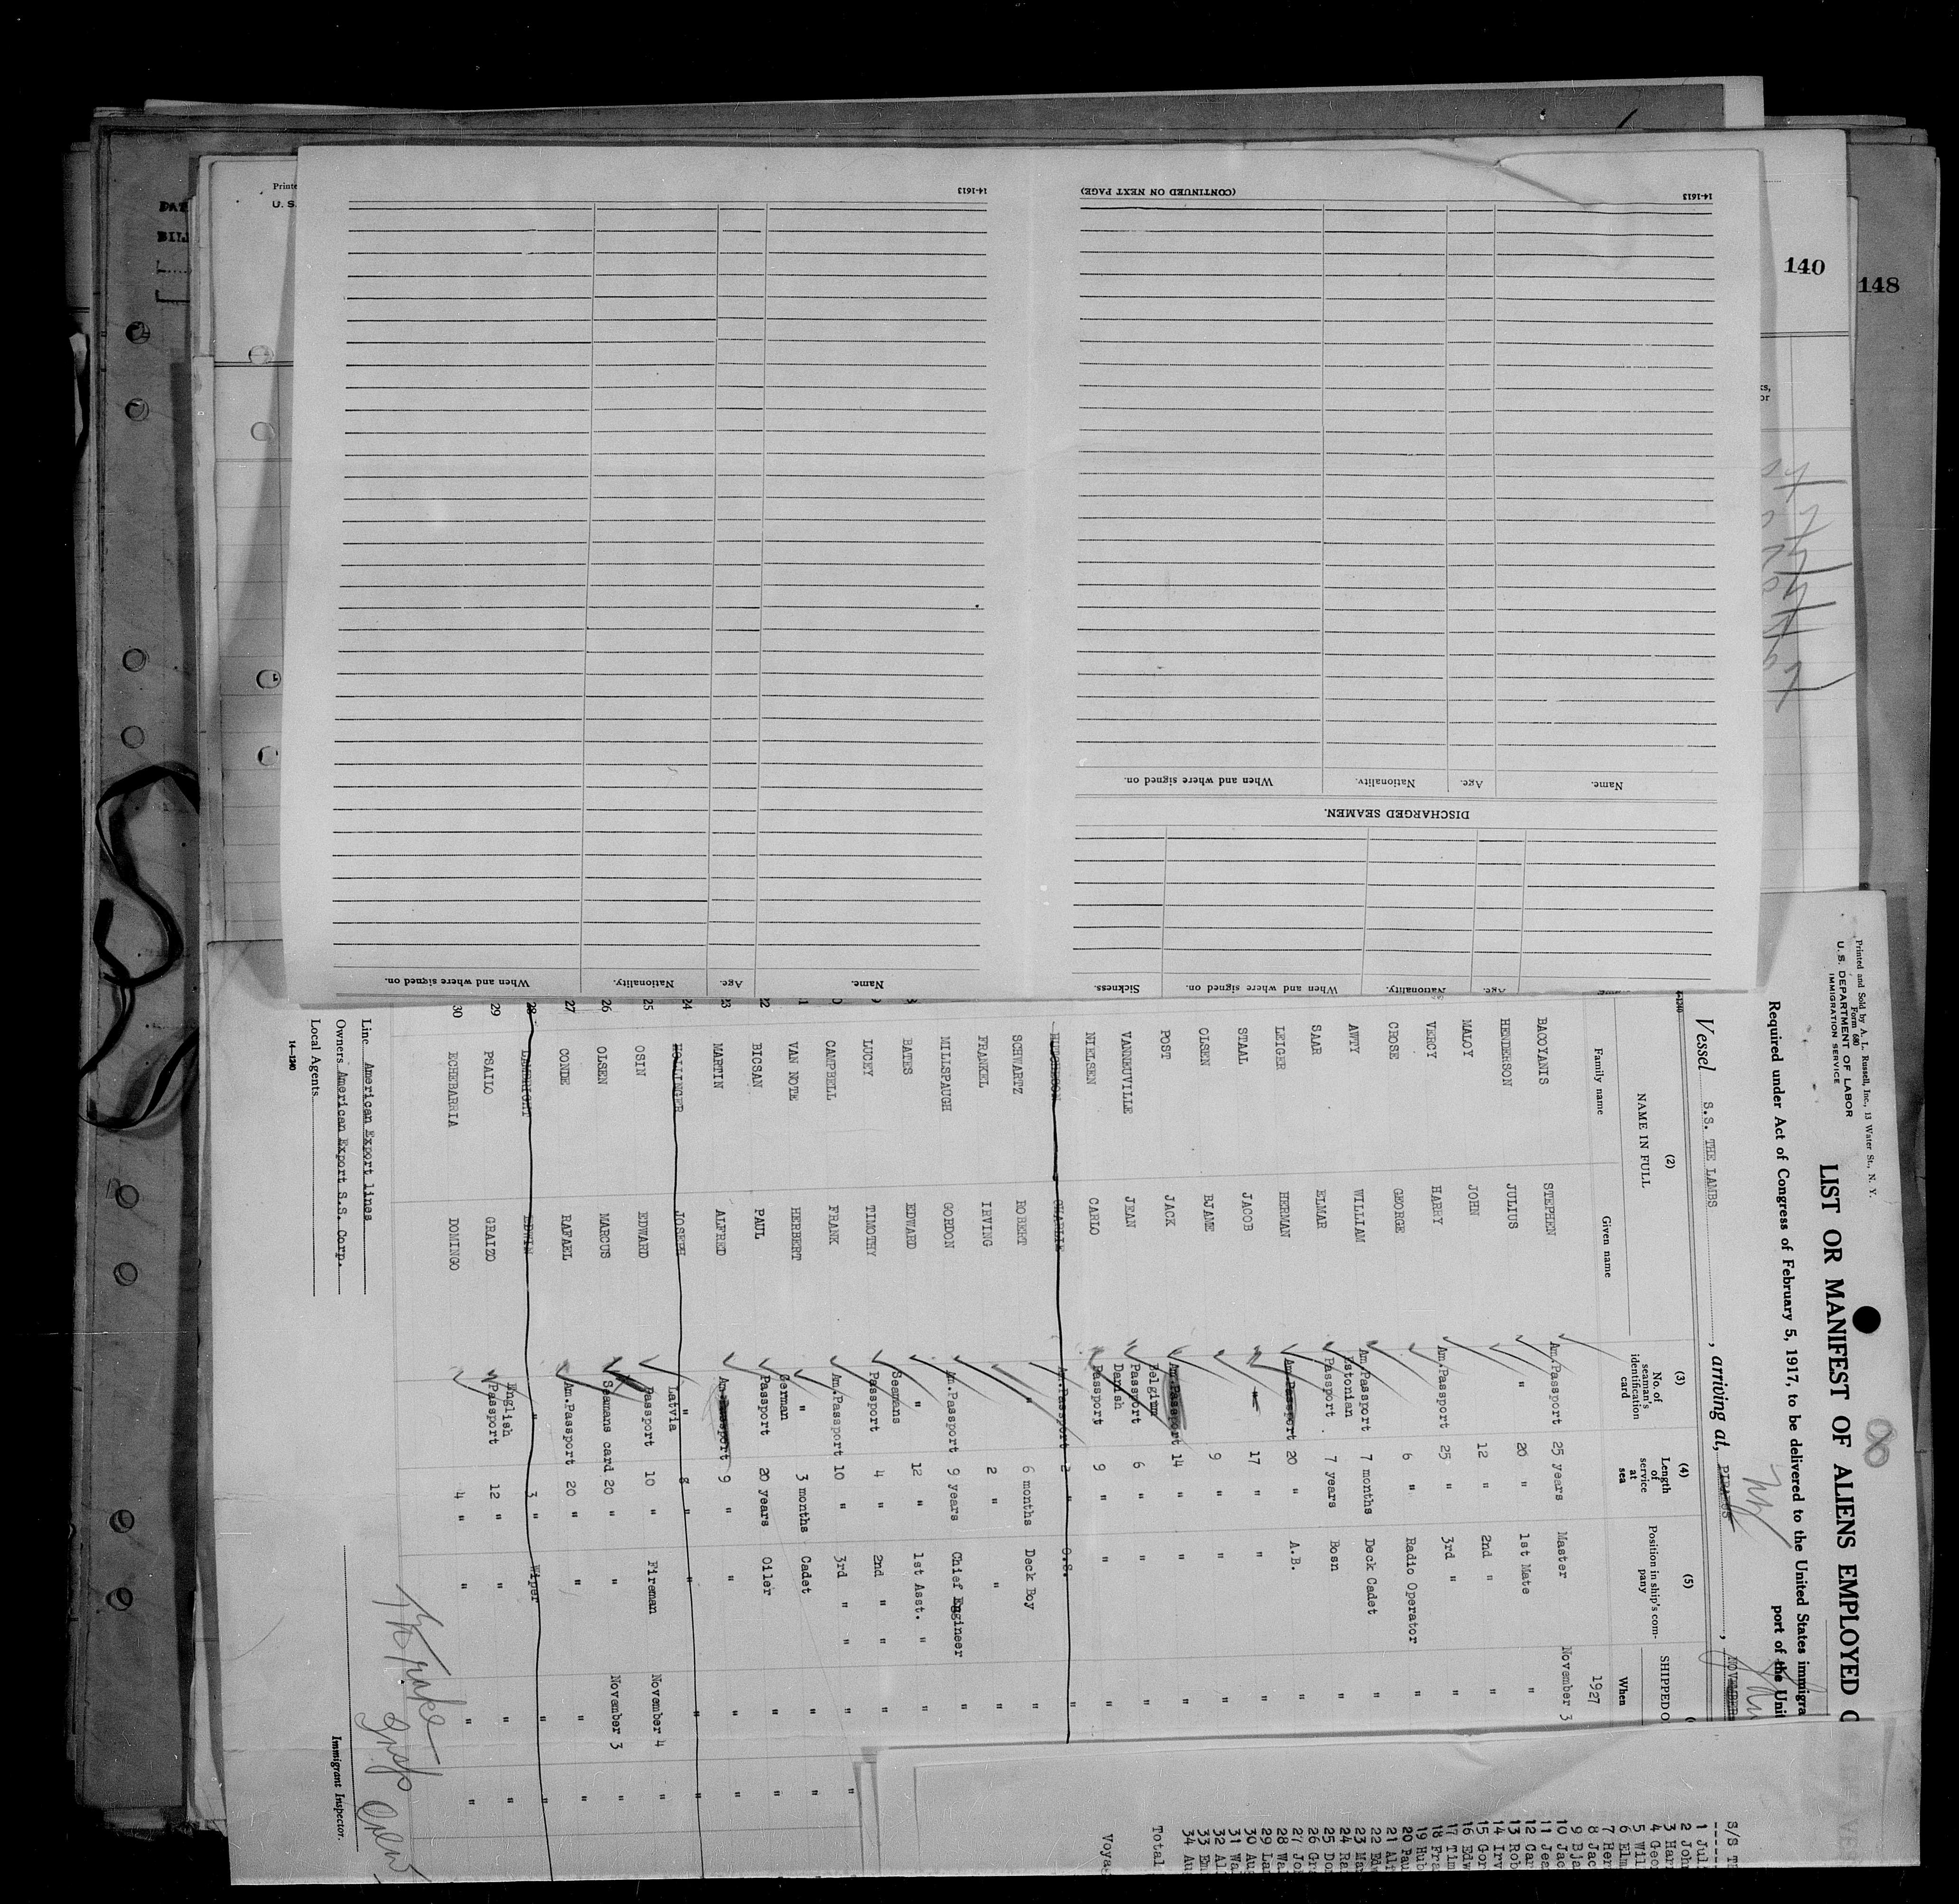 Printed and Sold by A. L. Russell, Inc., 13 Water St., N. Y.
Form 680
U. S. DEPARTMENT OF LABOR
IMMIGRATION SERVICE
LIST OR MANIFEST OF ALIENS EMPLOYED
Required under Act of Congress of February 5, 1917, to be delivered to the United States immigra
port of the Unit
Vessel S.S. THE LAMBS, arriving at, PIRAEUS, NOVEMBER
(2) (3) (4) (5)
NAME IN FULL
Family name Given name
No. of seaman's identification card
Length of service at sea
Position in ship's company
SHIPPED O
When
1927
BACOYANIS STEPHEN Am.Passport 25 years Master November 3
HENDERSON JULIUS " 20 " 1st Mate "
MALOY JOHN 12 " 2nd " "
VERCY HARRY Am.Passport 25 " 3rd " "
CROSE GEORGE 6 " Radio Operator "
AWTY WILLIAM Am.Passport 7 months Deck Cadet "
SAAR ELMAR Estonian Passport 7 years Bosn "
LEIGER HERMAN Am.Passport 20 " A.B. "
STAAL JACOB " 17 " " "
OLSEN BJAME 9 " " "
POST JACK Am.Passport 14 " " "
VANNEUVILLE JEAN Belgium Passport 6 " " "
NIELSEN CARLO Danish Passport 9 " " "
CHARLIE Am.Passport 2 " O.S. "
SCHWARTZ ROBERT " 6 months Deck Boy "
FRANKEL IRVING 2 " " "
MILLSPAUGH GORDON Am.Passport 9 years Chief Engineer "
BATES EDWARD " 12 " 1st Asst. " "
LUCEY TIMOTHY Seamans Passport 4 " 2nd " " "
CAMPBELL FRANK Am.Passport 10 " 3rd " " " "
VAN NOTE HERBERT " 3 months Cadet " "
22 BICSAN PAUL German Passport 20 years Oiler " "
23 MARTIN ALFRED Am.Passport 9 " " " "
24 HOLLINGER JOSEPH " 8 " " " "
25 OSIN EDWARD Latvia Passport 10 " Fireman November 4 "
26 OLSEN MARCUS Seamans card 20 " " November 3 "
27 CONDE RAFAEL Am.Passport 20 " " " "
28 LAMBRIGHT EDWIN " 3 " Wiper " "
29 PSAILO GRAIZO English Passport 12 " " " "
30 ECHEBARRIA DOMINGO 4 " " " "
Line American Export lines
Owners American Export S.S. Corp.
Local Agents
14—1240
Immigrant Inspector.
140
148
Printe
U. S.
14-1613
(CONTINUED ON NEXT PAGE)
14-1613
Name. Age. Nationality. When and where signed on.
DISCHARGED SEAMEN.
Age. Nationality. When and where signed on. Sickness.
Name. Age. Nationality. When and where signed on.
S/S T
1 Jul
2 Joh
3 Har
4 Geo
5 Wil
6 Elm
7 Her
8 Jac
9 Bja
10 Jac
11 Jea
12 Car
13 Rob
14 Irv
15 Gor
16 Edw
17 Tim
18 Fra
19 Hub
20 Pau
21 Al
22 Edw
23 Ma
24 Ra
25 Do
26 Gr
27 Jo
28 Wa
29 La
30 Au
31 Wa
32 Al
33 Em
34 Au
Total
Voya